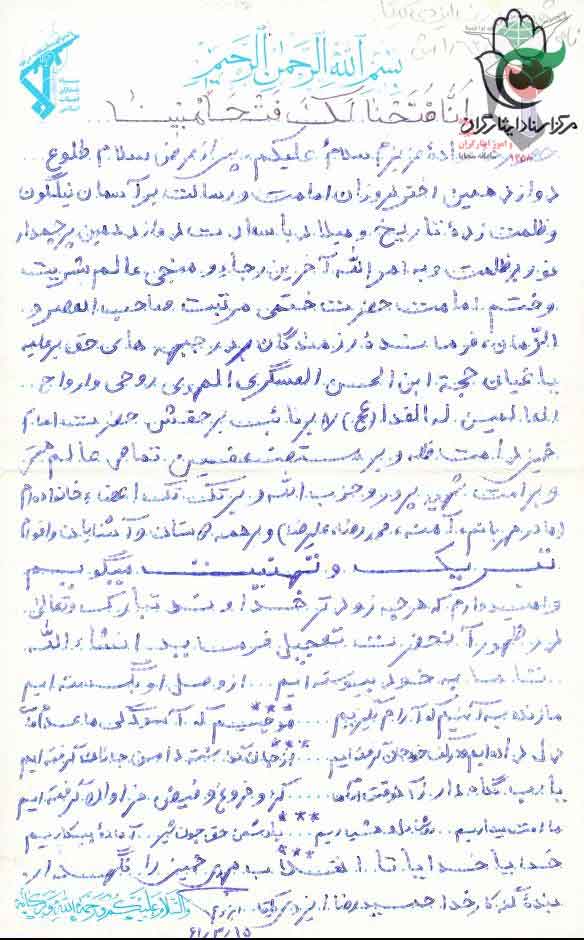 بسم الله الرحمن الرحیم
انا فتحنا لک فتحا مبینا...
مرکز اسناد ایثارگران
عزیزم سلام علیکم، پس از عرض سلام طلوع
دوازدهمین اختر فروزان امامت و رسالت بر آسمان نیلگون
و ظلمت زدهٔ تاریخ و میلاد با سعادت دوازدهمین پرچمدار
نور بر ظلمت و به امر الله آخرین رجاء و منجی عالم بشریت
و ختم امامت حضرت ختمی مرتبت صاحب العصر و
الزمان، فرماندهٔ رزمندگان در جبهه های حق بر علیه
باغیان حجة ابن الحسن العسگری المهدی روحی و ارواح...
العالمین له الفدا (عج) را بر نائب بر حقش حضرت امام
خمینی دامت و بر مستضعفین تمامی عالم
و بر امت شهید پرور و حزب الله و بر تک تک اعضاء خانواده ام
(مادر مهربانم، آمنه، محمدرضا، علیرضا) و بر همه دوستان و آشنایان و اقوام
تبریک و تهنیت میگویم
و امیدوارم که هر چه زودتر خداوند تبارک و تعالی
در ظهور آنحضرت تعجیل فرماید انشاء الله
تا ما به خود پیوسته ایم... از وصل او بگسسته ایم
ما زنده به آنیم که آرام نگیریم.... موجیم که آسودگی ما عدم ماست
یا رب نگاه دار
ما امت بیداریم... روشندل و هشیاریم... با دشمن حق چون شیر.. آمادهٔ پیکاریم
خدایا خدایا تا انقلاب مهدی خمینی را نگهدار
بندهٔ گنه کار خدا حمیدرضا ایزدی
والسلام علیکم و رحمة الله و برکاته
۶۱/۳/۱۵